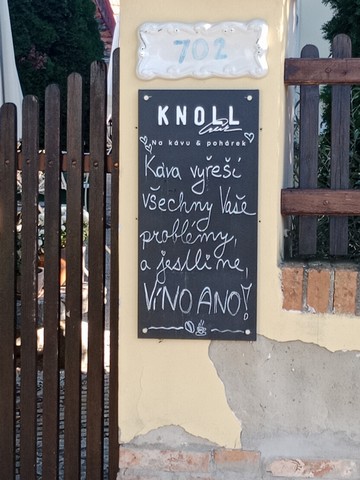 702
KNOLL
Na kávu & pohárek
Káva vyřeší
všechny Vaše
problémy,
a jestli ne,
VÍNO ANO!